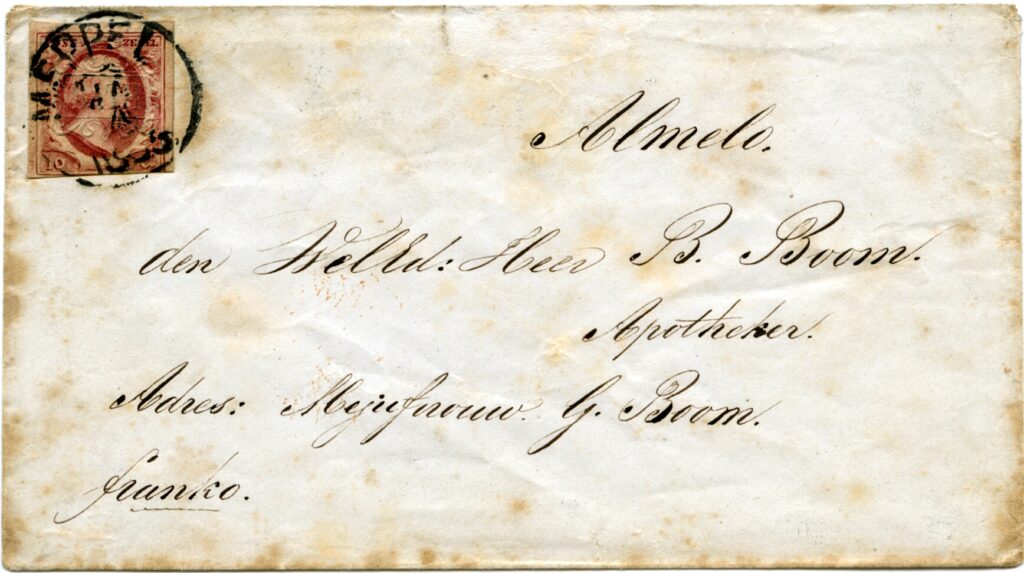 MEPPEL
1855
POST ZEGEL
10 C.
Almelo.
den WelEd: Heer B. Boom.
Apotheker.
Adres: Mejufvrouw. G. Boom.
franko.